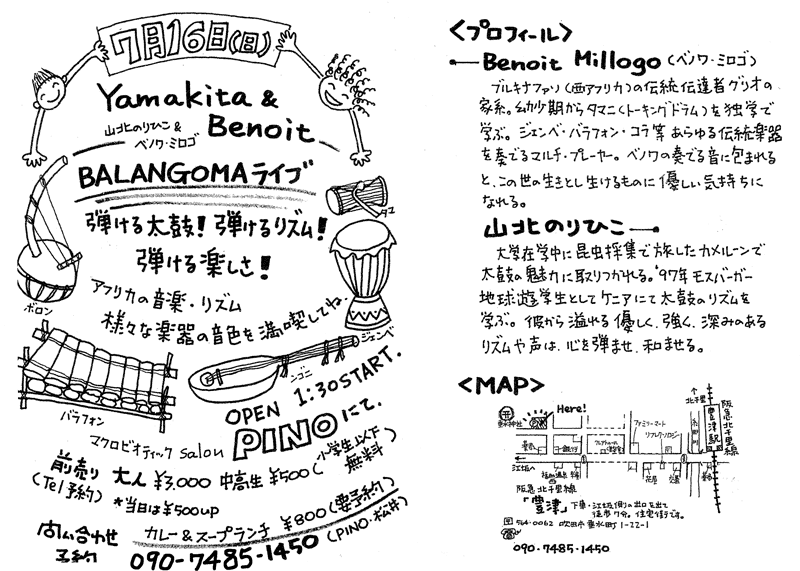 7月16日(日)
Yamakita &
Benoit
山北のりひこ &
ベノワ・ミロゴ
BALANGOMA ライブ
弾ける太鼓! 弾けるリズム!
弾ける楽しさ!
アフリカの音楽・リズム
様々な楽器の音色を満喫してね.
ボロン
タマ
ジェンベ
バラフォン
ンゴニ
OPEN 1:30 START.
マクロビオティック salon PINO にて.
前売り 大人 ¥3,000 中高生 ¥500 (小学生以下無料)
(Tel予約) *当日は¥500up
カレー&スープランチ ¥800 (要予約)
問い合わせ
予約
090-7485-1450 (PINO・松井)
<プロフィール>
Benoit Millogo (ベノワ・ミロゴ)
ブルキナファソ(西アフリカ)の伝統伝達者グリオの
家系。幼少期からタマニ(トーキングドラム)を独学で
学ぶ。ジェンベ・バラフォン・コラ等あらゆる伝統楽器
を奏でるマルチ・プレーヤー。ベノワの奏でる音に包まれる
と、この世の生きとし生けるものに優しい気持ちに
なれる。
山北のりひこ
大学在学中に昆虫採集で旅したカメルーンで
太鼓の魅力に取りつかれる。'97年モスバーガー
地球遊学生としてケニアにて太鼓のリズムを
学ぶ。彼から溢れる優しく、強く、深みのある
リズムや声は、心を弾ませ、和ませる。
<MAP>
Here!
垂水神社
ファミリーマート
リフレクソロジー
↑北千里
豊津駅
阪急北千里線
←江坂へ
花屋
交番
阪急北千里線
「豊津」下車・江坂(側)の出口を出て
徒歩7分。住宅街です。
〒564-0062 吹田市垂水町1-22-1
☎
090-7485-1450